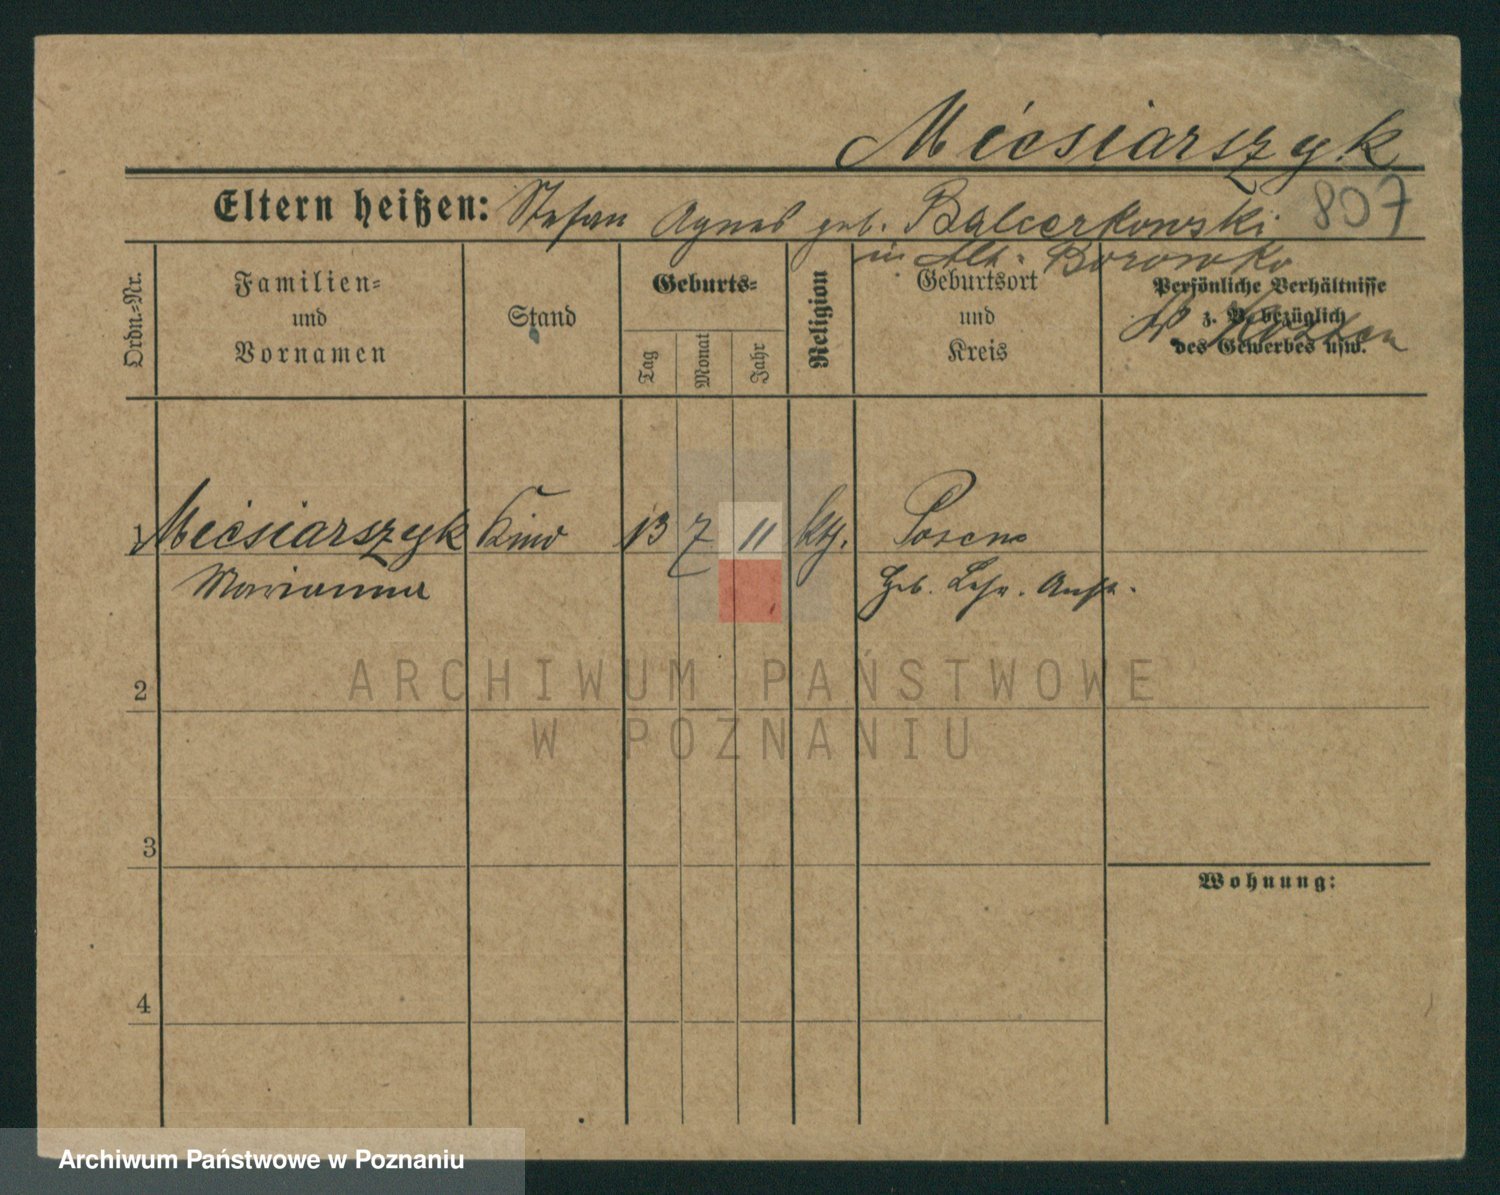 Mécsiarszyk
Eltern heißen: Stefan Agnes geb. Balcerkowski 807
in Alt-Borowko
Kr. Kosten
Ordn.-Nr.
Familien-
und
Vornamen
Stand
Geburts-
Tag
Monat
Jahr
Religion
Geburtsort
und
Kreis
Persönliche Verhältnisse
z. B. bezüglich
des Gewerbes usw.
1 Mécsiarszyk Kind 13 7 11 kth. Posen
Marianna Heb. Lehr. Anst.
2
ARCHIWUM PAŃSTWOWE
W POZNANIU
3
Wohnung:
4
Archiwum Państwowe w Poznaniu